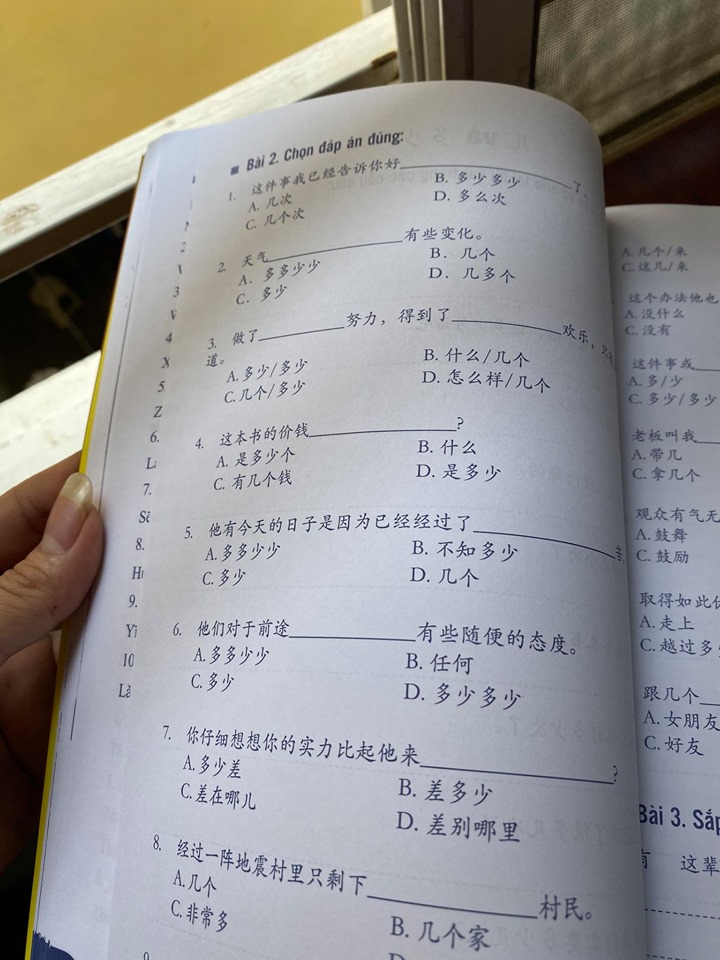 Bài 2. Chọn đáp án đúng:
1. 这件事我已经告诉你好____了。
A. 几次 B. 多少多少
C. 几个次 D. 多么次
2. 天气____有些变化。
A. 多多少少 B. 几个
C. 多少 D. 几多个
3. 做了____努力，得到了____欢乐，
道。
A. 多少/多少 B. 什么/几个
C. 几个/多少 D. 怎么样/几个
4. 这本书的价钱____?
A. 是多少个 B. 什么
C. 有几个钱 D. 是多少
5. 他有今天的日子是因为已经经过了____
A. 多多少少 B. 不知多少
C. 多少 D. 几个
6. 他们对于前途____有些随便的态度。
A. 多多少少 B. 任何
C. 多少 D. 多少多少
7. 你仔细想想你的实力比起他来____?
A. 多少差 B. 差多少
C. 差在哪儿 D. 差别哪里
8. 经过一阵地震村里只剩下____村民。
A. 几个 B. 几个家
C. 非常多
2
3
V
4
X
5
Z
6.
7.
8.
9.
Yī
10
A. 几个/来
C. 这几/来
这个办法他也
A. 没什么
C. 没有
这件事或____
A. 多/少
C. 多少/多少
老板叫我____
A. 带几
C. 拿几个
观众有气无
A. 鼓舞
C. 鼓励
取得如此
A. 走上
C. 越过多
跟几个____
A. 女朋友
C. 好友
Bài 3. Sắp
这辈